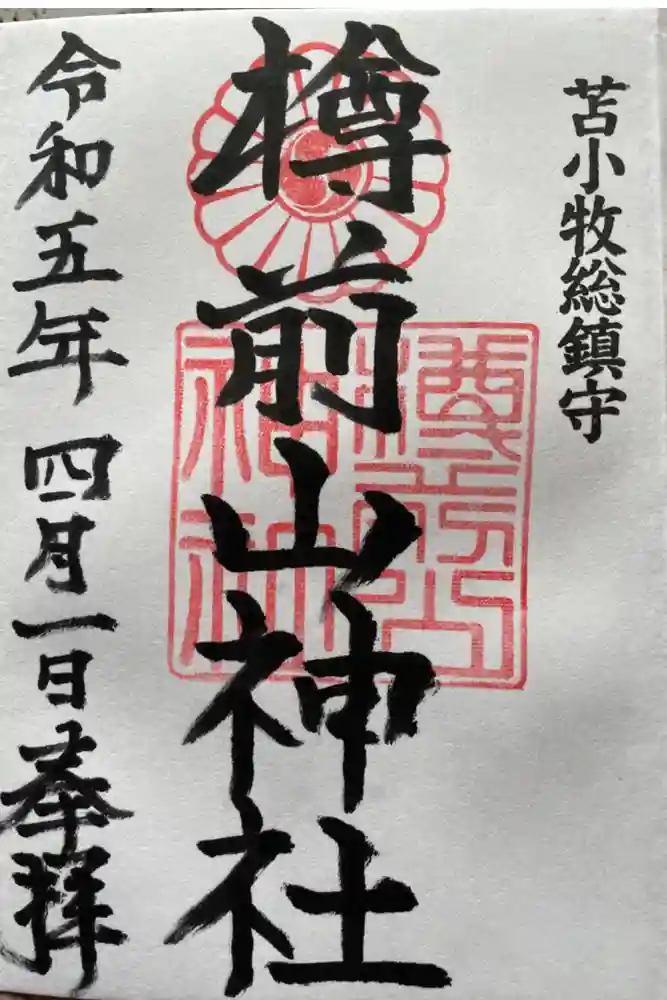 苫小牧総鎮守
樽前山神社
樽前山神社
令和五年四月一日奉拝